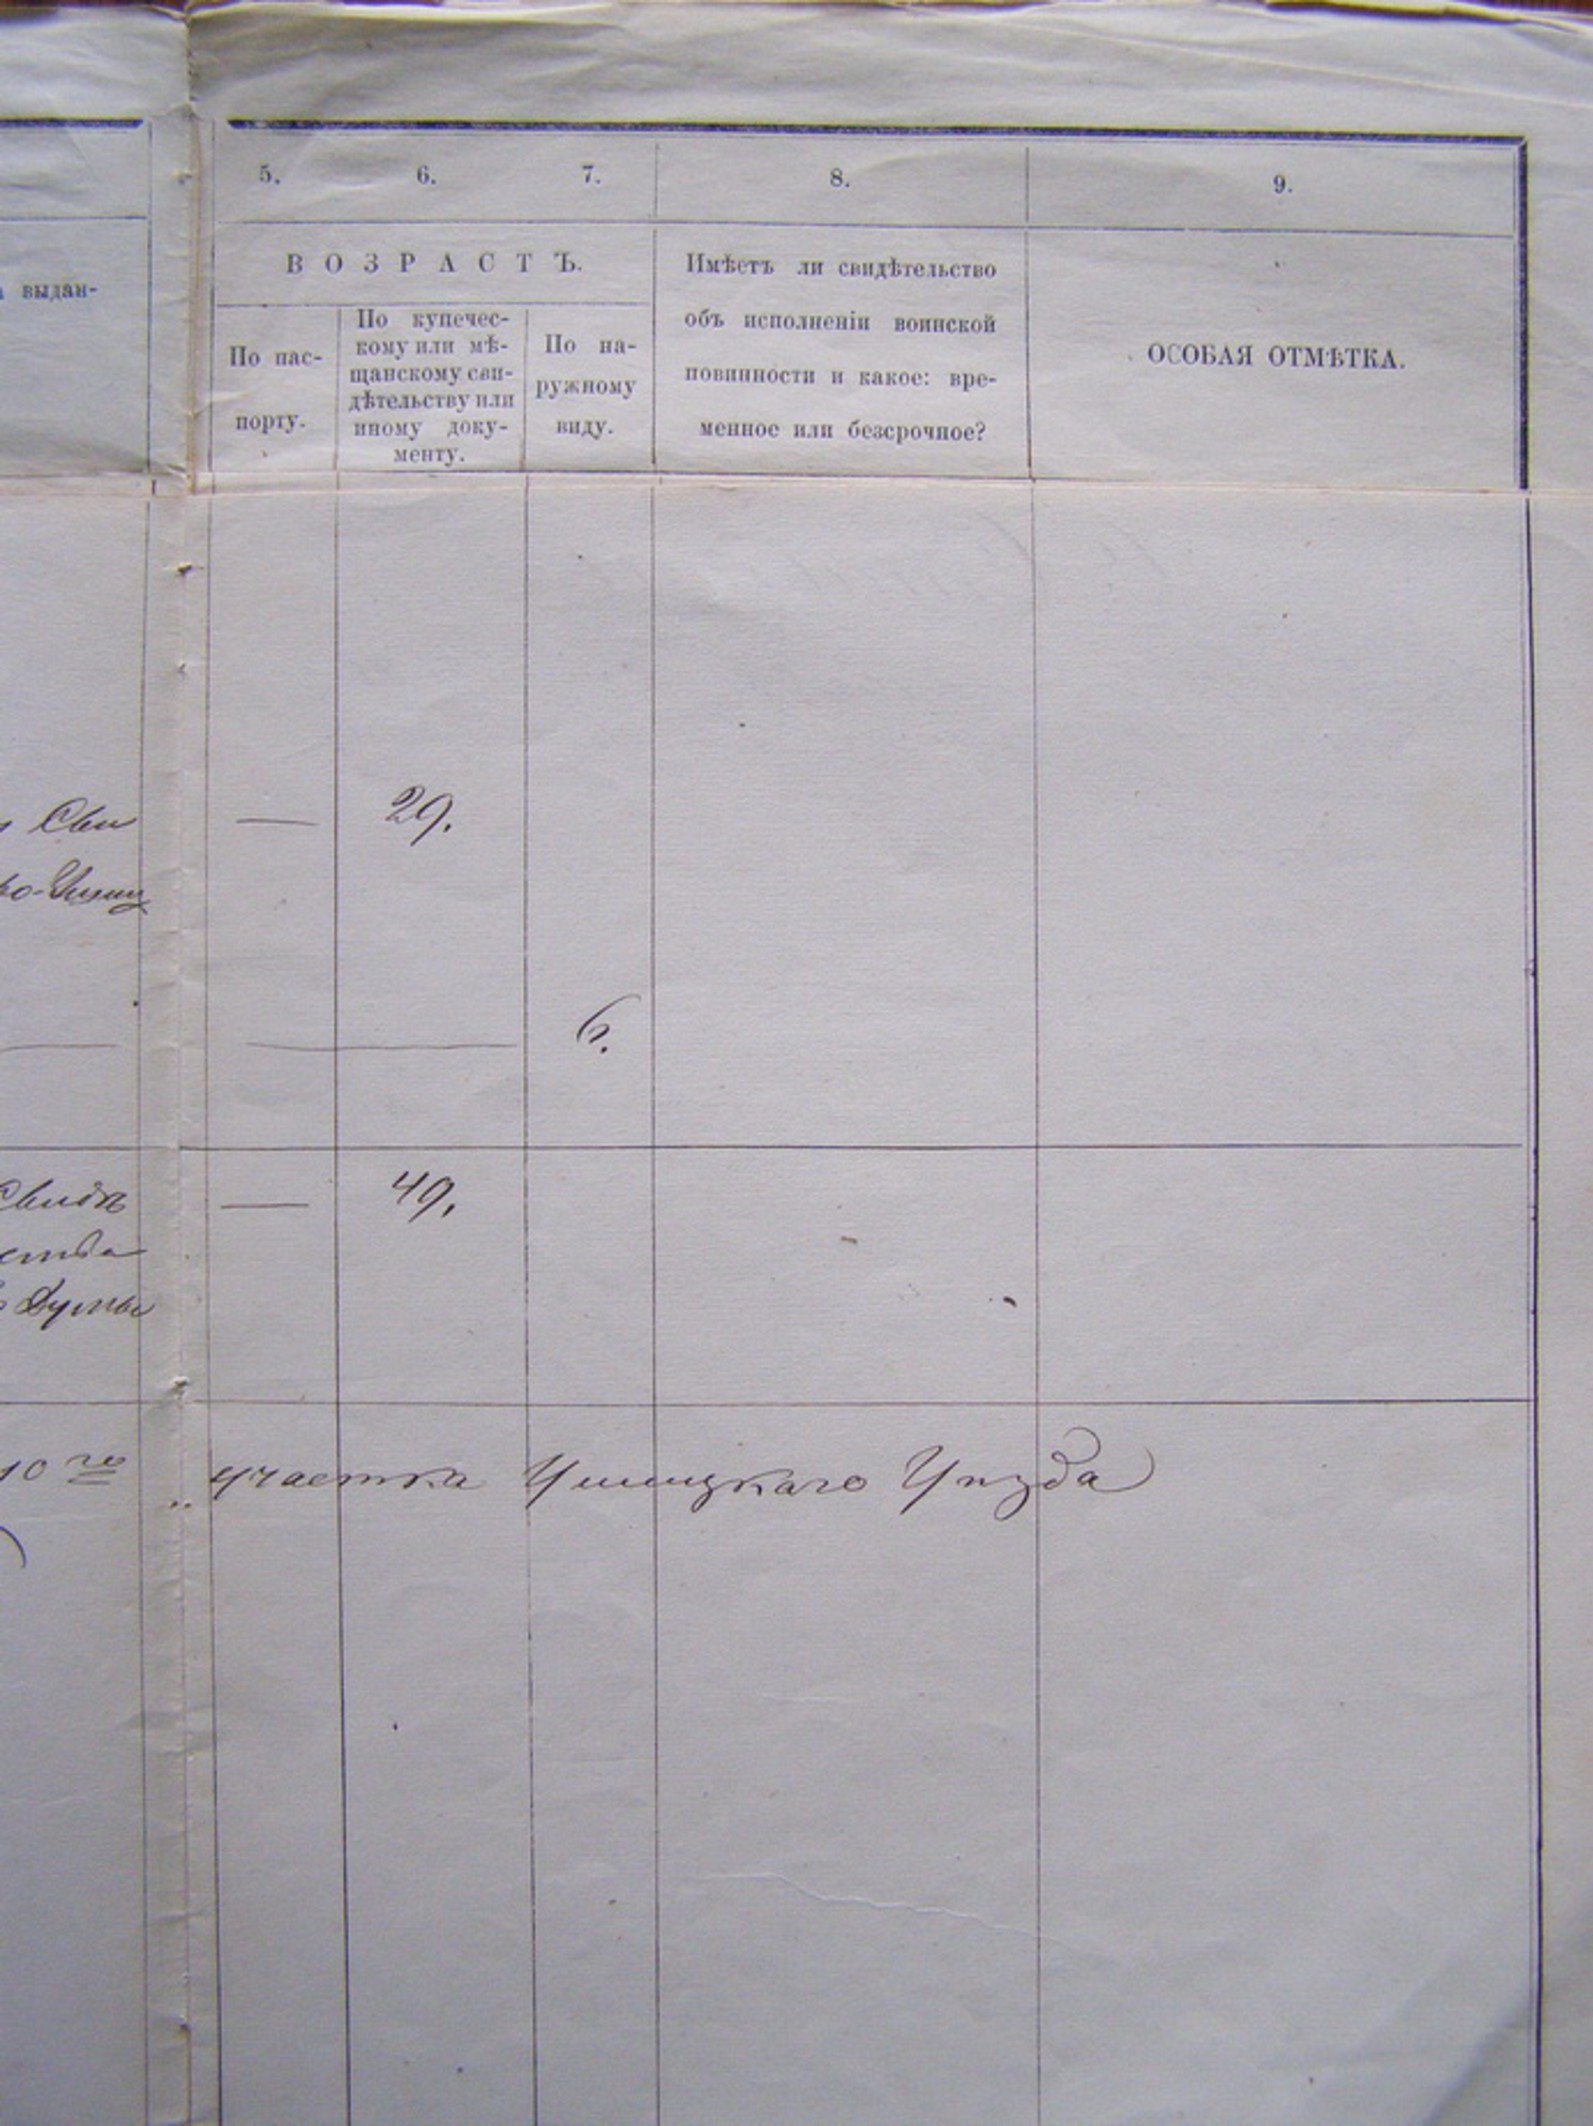 5. 6. 7. 8. 9.
ВОЗРАСТЪ.
выдан-
По пас-
порту.
По купечес-
кому или мѣ-
щанскому сви-
дѣтельству или
иному доку-
менту.
По на-
ружному
виду.
Имѣетъ ли свидѣтельство
объ исполненіи воинской
повинности и какое: вре-
менное или безсрочное?
ОСОБАЯ ОТМѢТКА.
Сви — 29.
6.
Свидѣ — 49.
ства
Думы
10го участка Ушицкаго Уѣзда